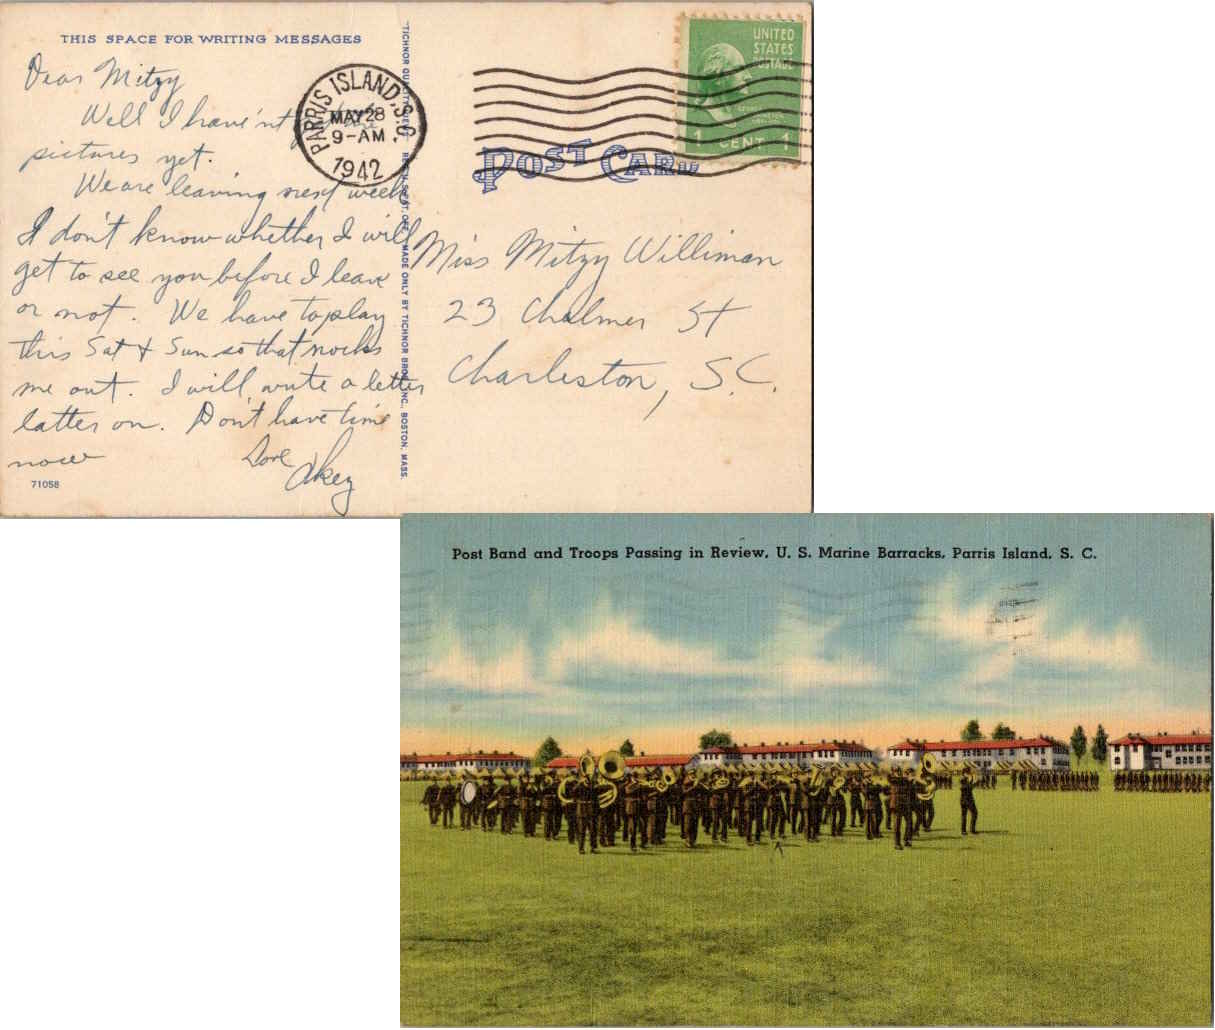 THIS SPACE FOR WRITING MESSAGES
Dear Mitzy
Well I have'nt
pictures yet.
We are leaving next week
I don't know whether I will
get to see you before I leave
or not. We have to play
this Sat & Sun so that nocks
me out. I will write a letter
latter on. Don't have time
now
Love
Akey
71058
PARRIS ISLAND, S.C.
MAY 28
9-AM
1942
UNITED
STATES
POSTAGE
1 CENT 1
POST CARD
Miss Mitzy Williman
23 Chalmer St
Charleston, S.C.
MADE ONLY BY TICHNOR BROS., INC., BOSTON, MASS.
Post Band and Troops Passing in Review, U. S. Marine Barracks, Parris Island, S. C.